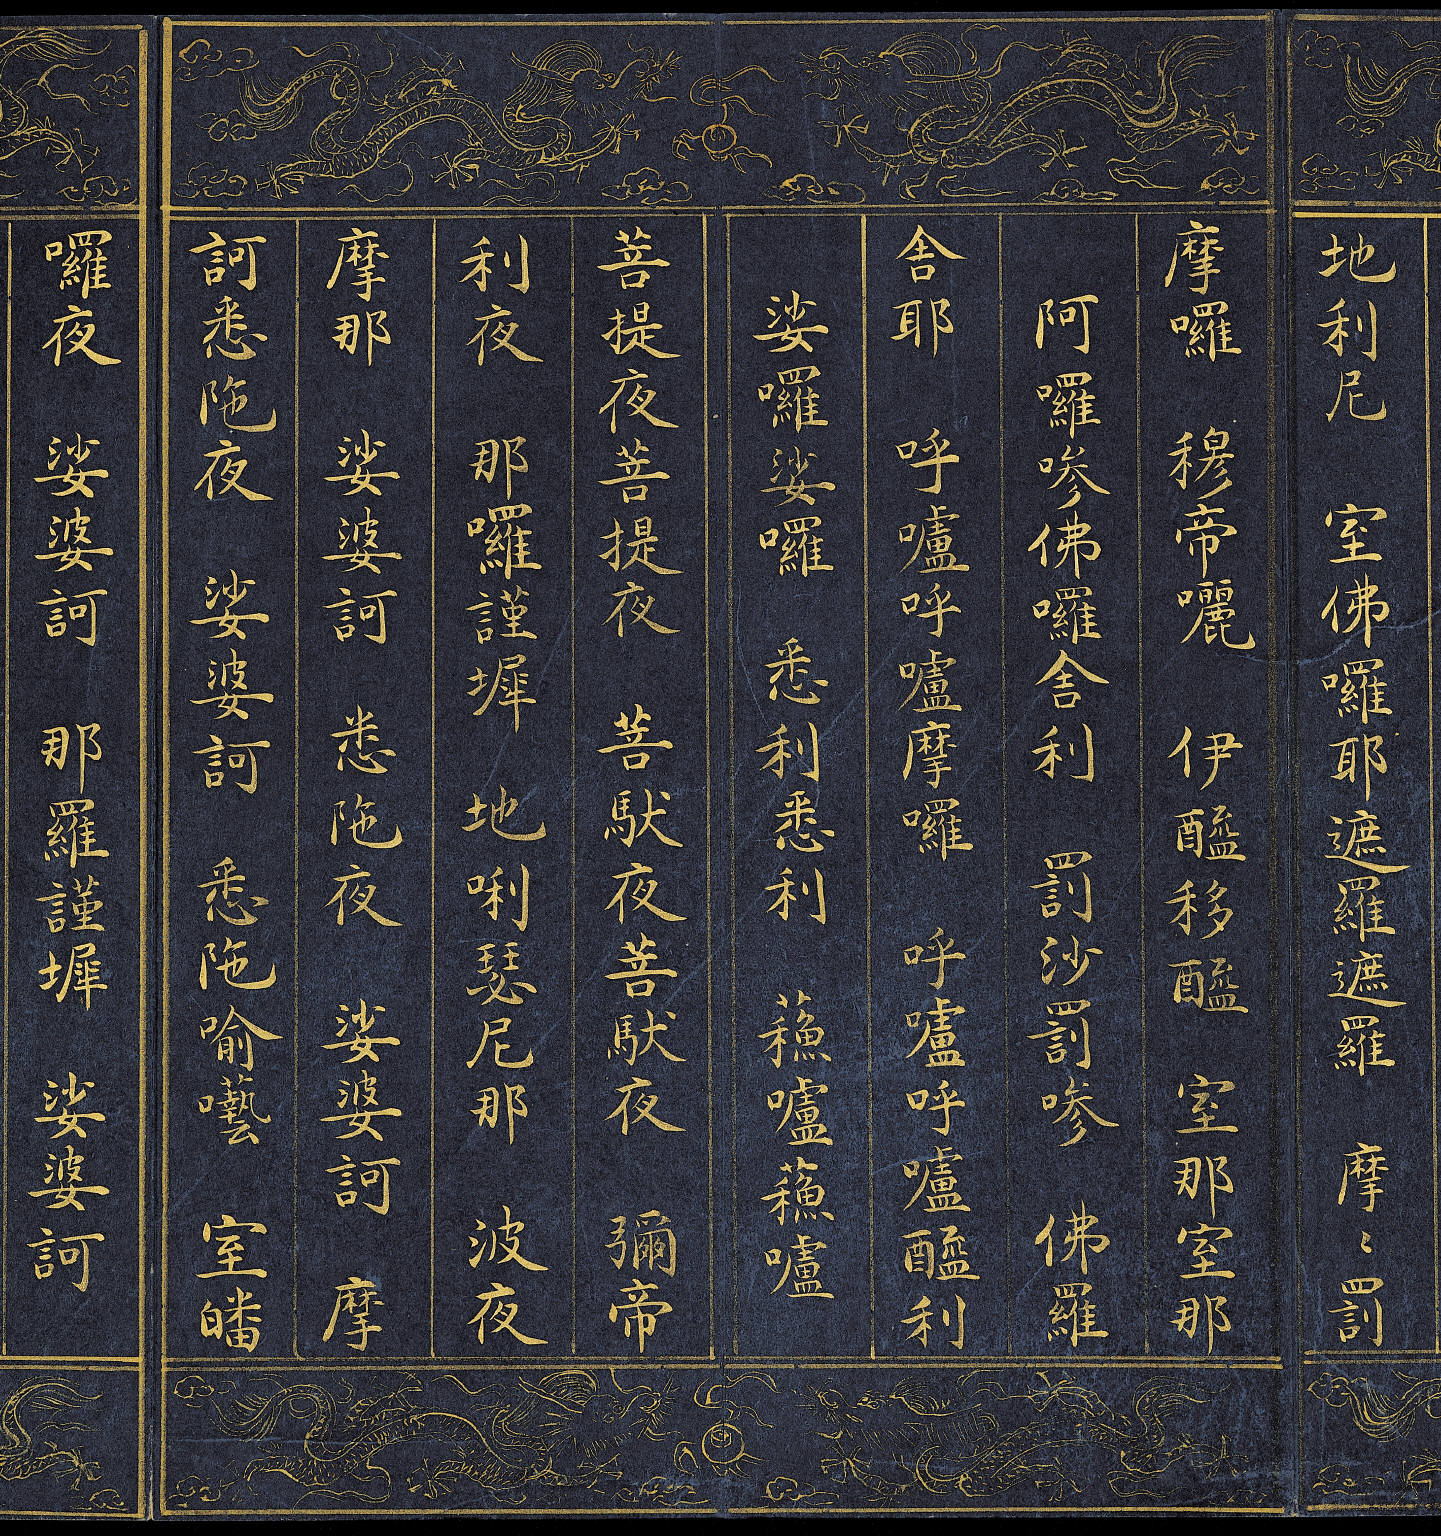 地利尼　室佛囉耶遮羅遮羅　摩〻罰
摩囉　穆帝囇　伊醯移醯　室那室那
阿囉嘇佛囉舍利　罰沙罰嘇　佛羅
舍耶　呼嚧呼嚧摩囉　呼嚧呼嚧醯利
娑囉娑囉　悉利悉利　蘓嚧蘓嚧
菩提夜菩提夜　菩馱夜菩馱夜　彌帝
利夜　那囉謹墀　地唎瑟尼那　波夜
摩那　娑婆訶　悉陁夜　娑婆訶　摩
訶悉陁夜　娑婆訶　悉陁喻囈　室皤
囉夜　娑婆訶　那羅謹墀　娑婆訶